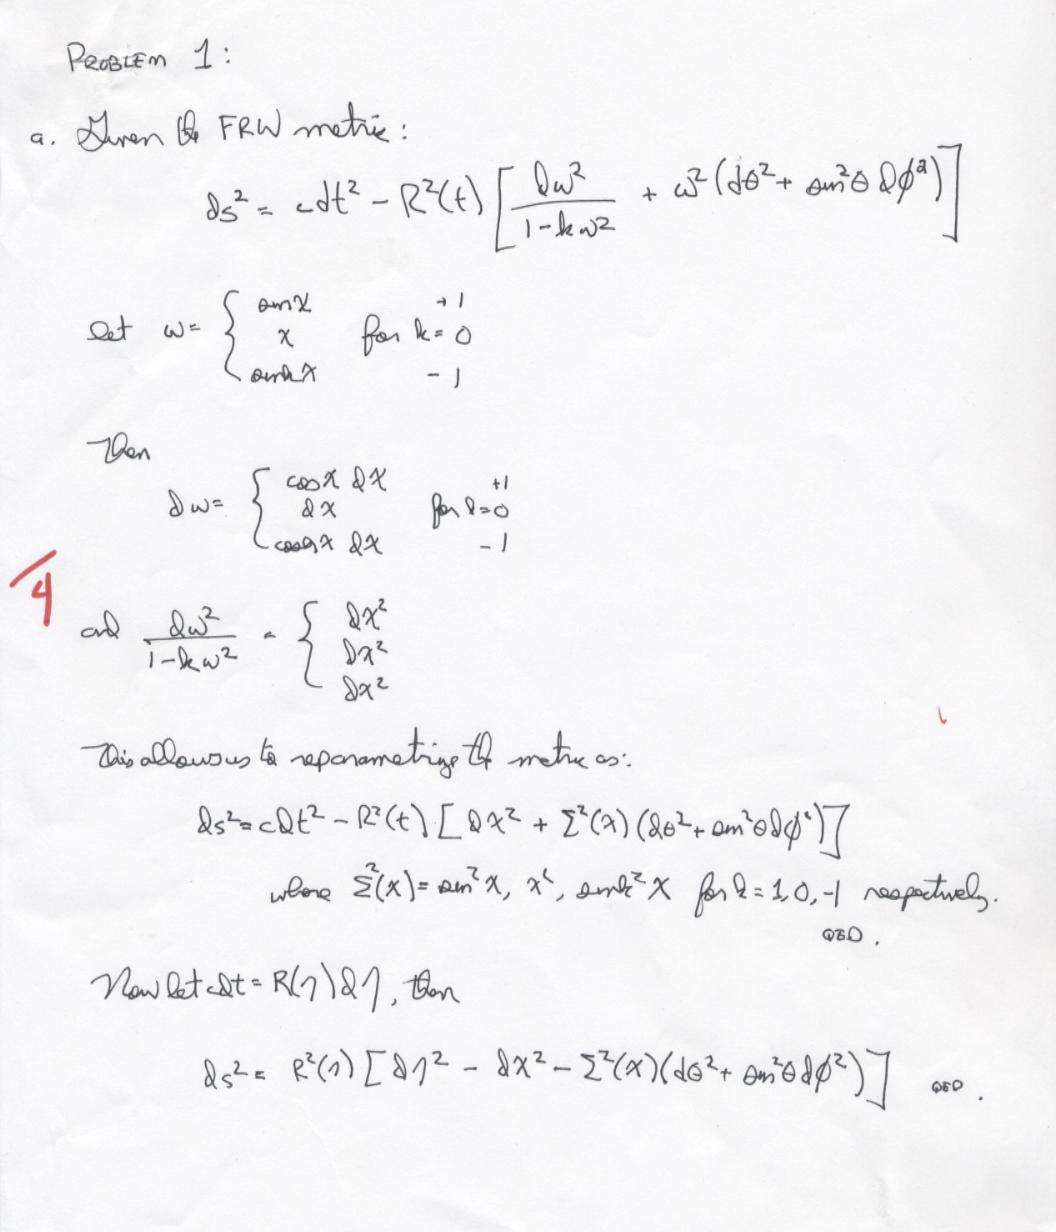 PROBLEM 1:
a. Given the FRW metric:
ds² = cdt² - R²(t) [ dω² / 1-kω² + ω² (dθ² + sin²θ dϕ²) ]
let ω = { sinχ
χ
sinhχ
for k = +1
0
-1
Then
dω = { cosχ dχ
dχ
coshχ dχ
for k = +1
0
-1
4
and dω² / 1-kω² = { dχ²
dχ²
dχ²
This allows us to reparametrize the metric as:
ds² = cdt² - R²(t) [ dχ² + Σ²(χ) (dθ² + sin²θ dϕ²) ]
where Σ²(χ) = sin²χ, χ², sinh²χ for k = 1, 0, -1 respectively.
QED.
Now let cdt = R(η) dη, then
ds² = R²(η) [ dη² - dχ² - Σ²(χ) (dθ² + sin²θ dϕ²) ] QED.